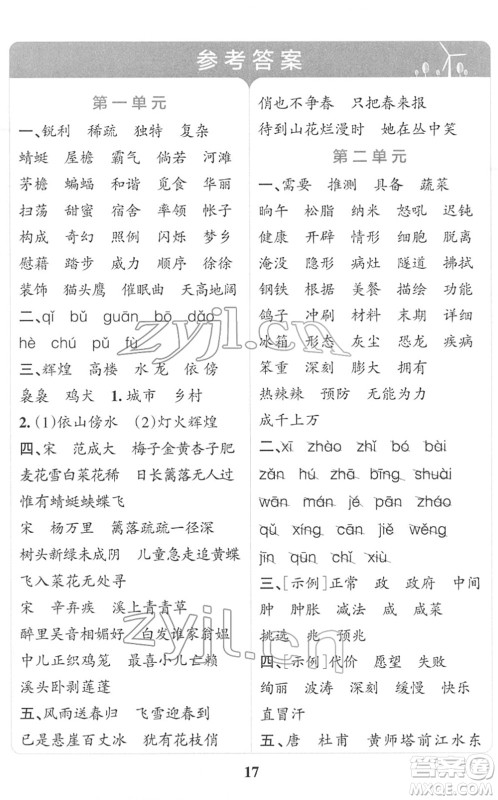 参考答案
第一单元
一、锐利 稀疏 独特 复杂
蜻蜓 屋檐 霸气 倘若 河滩
茅檐 蝙蝠 和谐 觅食 华丽
扫荡 甜蜜 宿舍 率领 帐子
构成 奇幻 照例 闪烁 梦乡
慰藉 踏步 威力 顺序 徐徐
装饰 猫头鹰 催眠曲 天高地阔
二、qǐ bǔ guān bō dǎo
hè chú pǔ fù
三、辉煌 高楼 水 依 傍
袅袅 鸡犬 1.城市 乡村
2.(1)依山傍水 (2)灯火辉煌
四、宋 范成大 梅子金黄杏子肥
麦花雪白菜花稀 日长篱落无人过
惟有蜻蜓蛱蝶飞
宋 杨万里 篱落疏疏一径深
树头新绿未成阴 儿童急走追黄蝶
飞入菜花无处寻
宋 辛弃疾 溪上青青草
醉里吴音相媚好 白发谁家翁媪
中儿正织鸡笼 最喜小儿亡赖
溪头卧剥莲蓬
五、风雨送春归 飞雪迎春到
已是悬崖百丈冰 犹有花枝俏
俏也不争春 只把春来报
待到山花烂漫时 她在丛中笑
第二单元
一、需要 推测 具备 蔬菜
晌午 松脂 纳米 怒吼 迟钝
健康 开辟 情形 细胞 脱离
淹没 隐形 病灶 隧道 拂拭
钢铁 根据 美餐 描绘 功能
鸽子 冲刷 材料 末期 凌空
冰箱 形态 灰尘 恐龙 疾病
笨重 深刻 扩大 拥有
热辣辣 预防 无能为力
成千上万
二、xī zhào zhǐ bó bài
zǎn hú zhā bīng shuài
wān dān fù háng bǔ
qǔ xíng cān jiě wěng
jīn qūn chì
三、[示例]正常 政 政府 中间
肿 肿胀 减法 咸 咸蛋
挑选 兆 预兆
四、[示例]代价 愿望 失败
绚丽 波涛 深刻 缓慢 快乐
直冒汗
五、唐 杜甫 黄师塔前江水东
17
zyjl.cn
zyjl.cn
答案圈
MXQE.COM